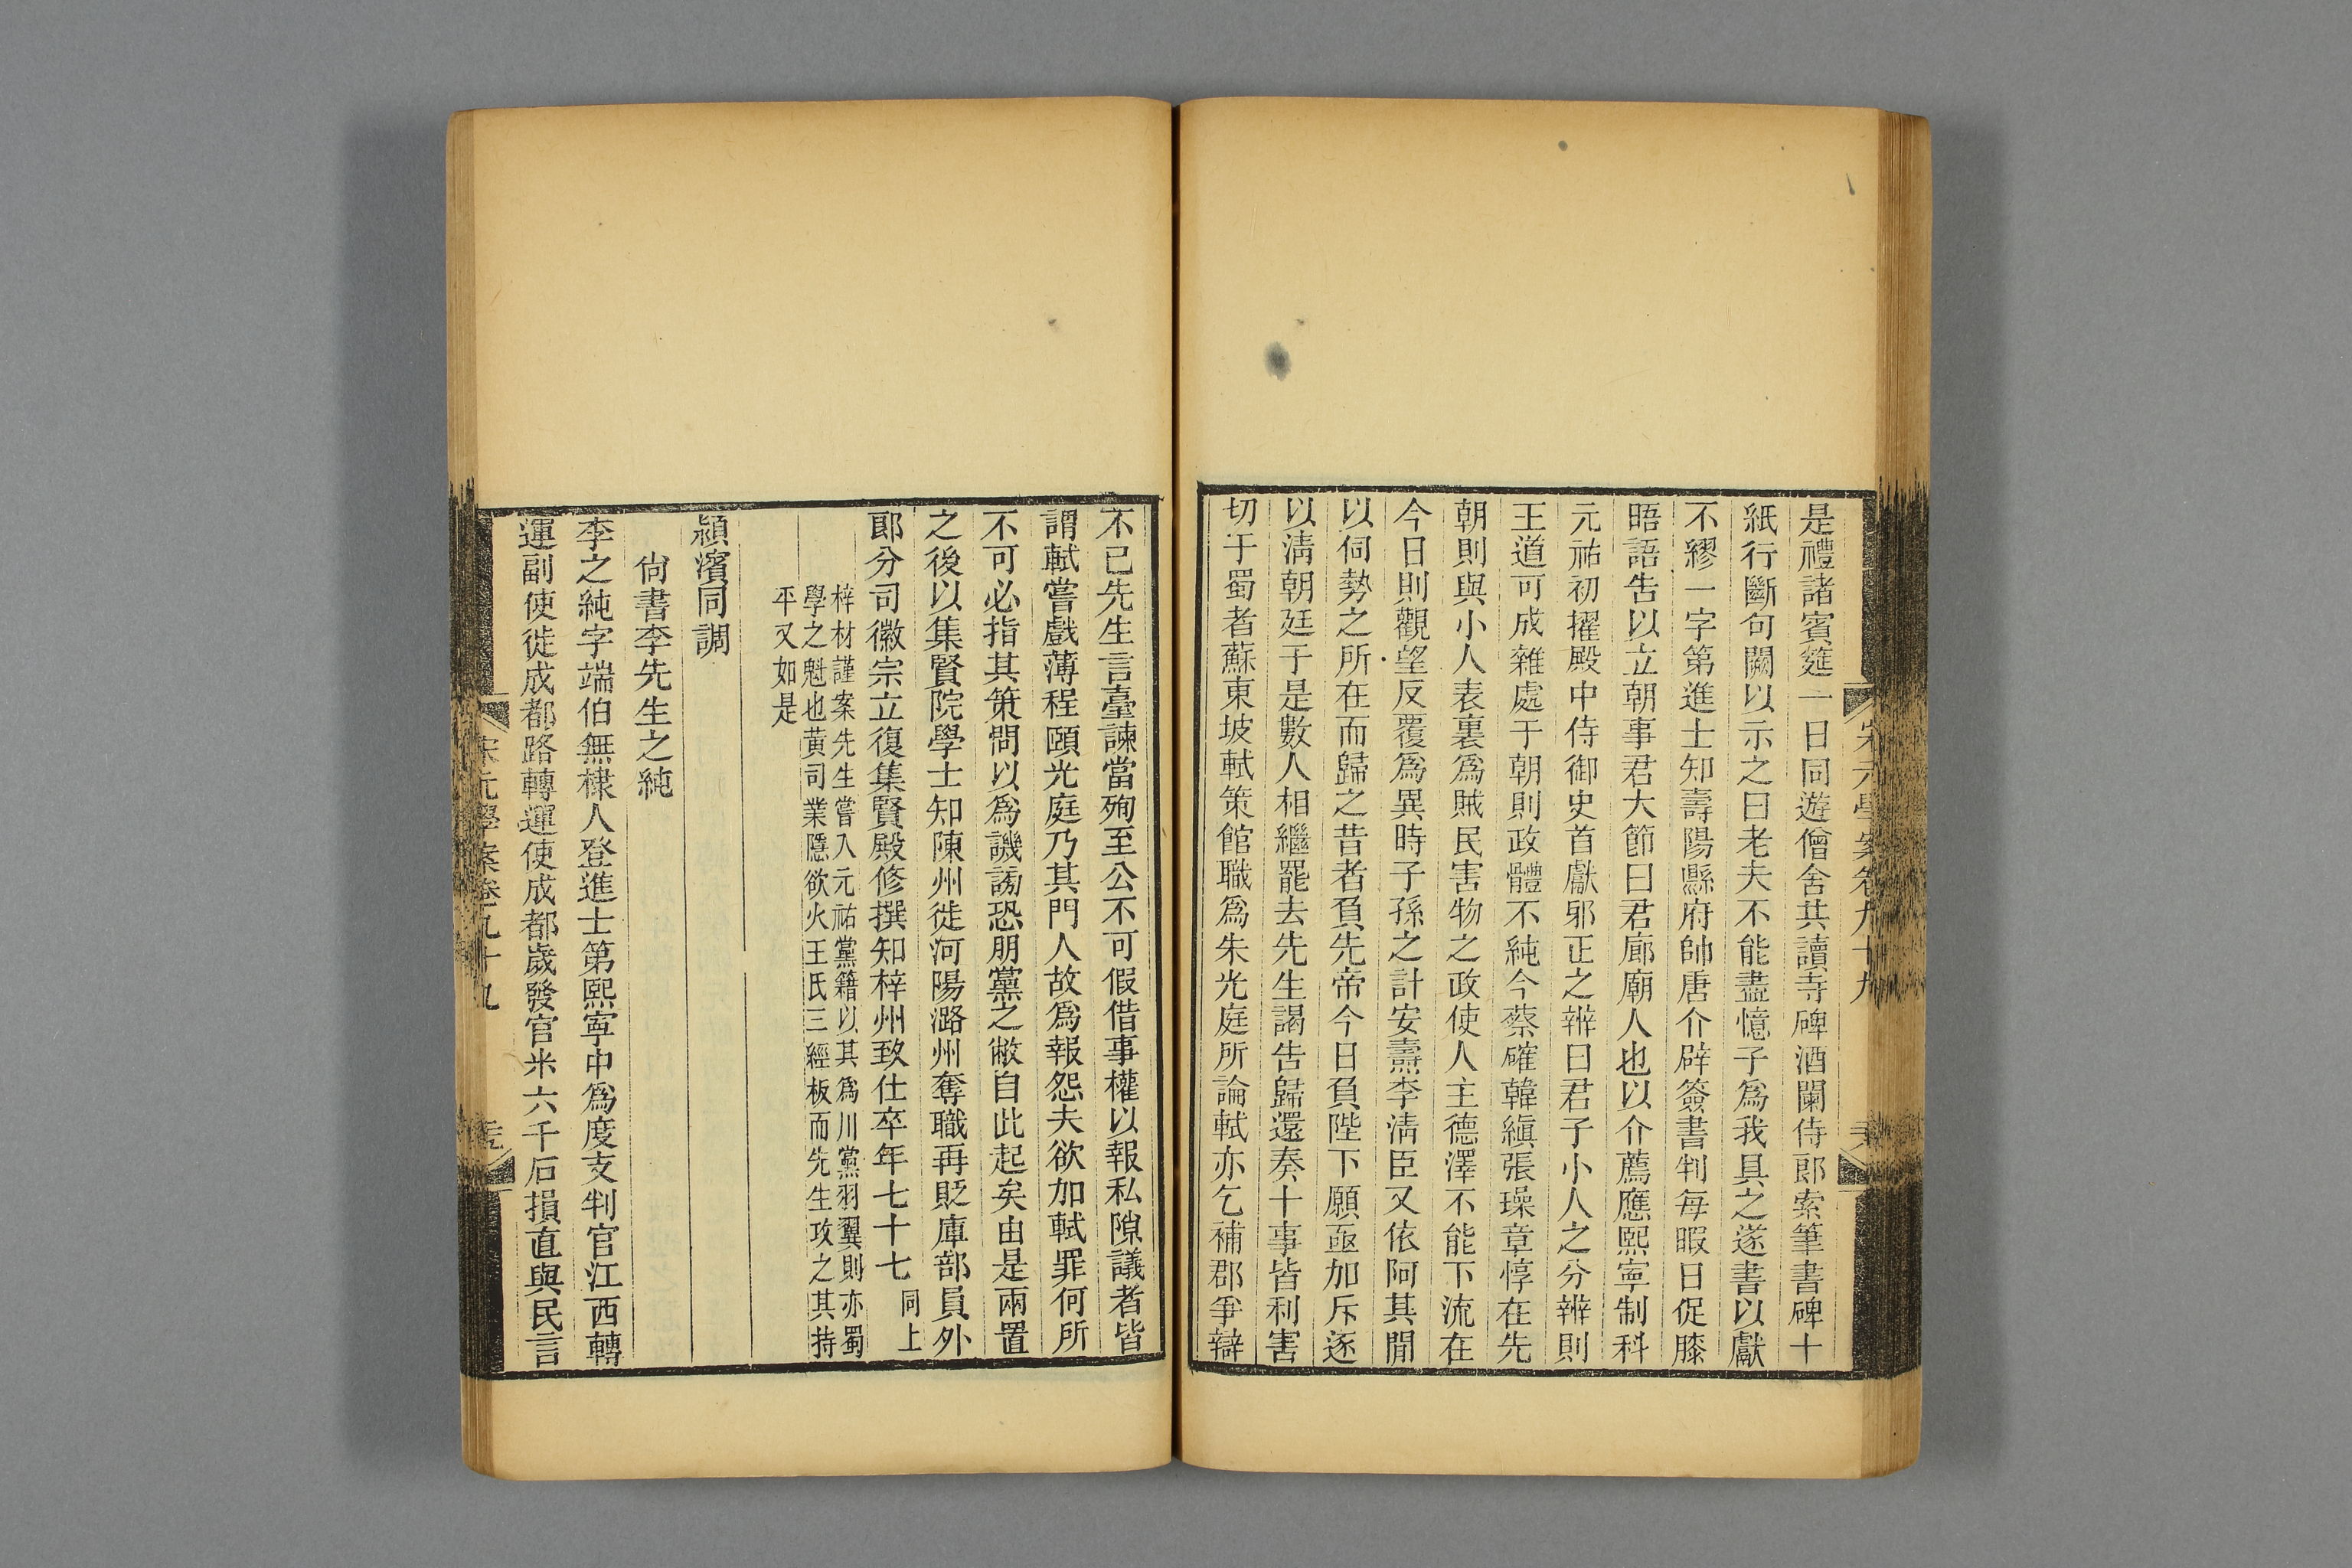 宋元學案卷九十九
是禮諸賓筵一日同遊僧舍共讀寺碑酒闌侍郎索筆書碑十
紙行斷句闕以示之曰老夫不能盡憶子爲我具之遂書以獻
不繆一字第進士知壽陽縣府帥唐介辟簽書判每暇日促膝
晤語告以立朝事君大節曰君廊廟人也以介薦應熙寧制科
元祐初擢殿中侍御史首獻邪正之辨曰君子小人之分辨則
王道可成雜處于朝則政體不純今蔡確韓縝張璪章惇在先
朝則與小人表裏爲賊民害物之政使人主德澤不能下流在
今日則觀望反覆爲異時子孫之計安燾李淸臣又依阿其閒
以伺勢之所在而歸之昔者負先帝今日負陛下願亟加斥逐
以淸朝廷于是數人相繼罷去先生謁告歸還奏十事皆利害
切于蜀者蘇東坡軾策館職爲朱光庭所論軾亦乞補郡爭辯
不已先生言臺諫當殉至公不可假借事權以報私隙議者皆
謂軾嘗戲薄程頤光庭乃其門人故爲報怨夫欲加軾罪何所
不可必指其策問以爲譏謗恐朋黨之敝自此起矣由是兩置
之後以集賢院學士知陳州徙河陽潞州奪職再貶庫部員外
郎分司徽宗立復集賢殿修撰知梓州致仕卒年七十七同上
梓材謹案先生嘗入元祐黨籍以其爲川黨羽翼則亦蜀
學之魁也黃司業隱欲火王氏三經板而先生攻之其持
平又如是
潁濱同調
尙書李先生之純
李之純字端伯無棣人登進士第熙寧中爲度支判官江西轉
運副使徙成都路轉運使成都歲發官米六千石損直與民言
宋元學案卷九十九